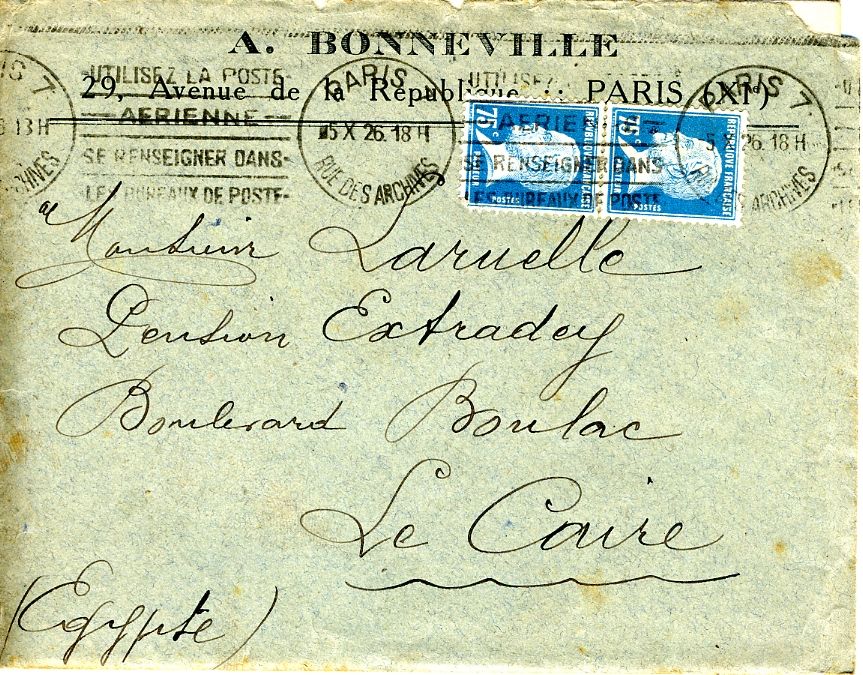 A. BONNEVILLE
29, Avenue de la République :: PARIS (XIe)
PARIS 7
5 X 26. 18 H
RUE DES ARCHIVES
UTILISEZ LA POSTE
AERIENNE
SE RENSEIGNER DANS
LES BUREAUX DE POSTE
75c
REPUBLIQUE FRANÇAISE
POSTES
75c
REPUBLIQUE FRANÇAISE
POSTES
UTILISEZ
AERIEN
SE RENSEIGNER DANS
LES BUREAUX DE POSTE
PARIS 7
5 X 26. 18 H
ARCHIVES
Monsieur Laruelle
Pension Extraday
Boulevard Boulac
Le Caire
(Egypte)